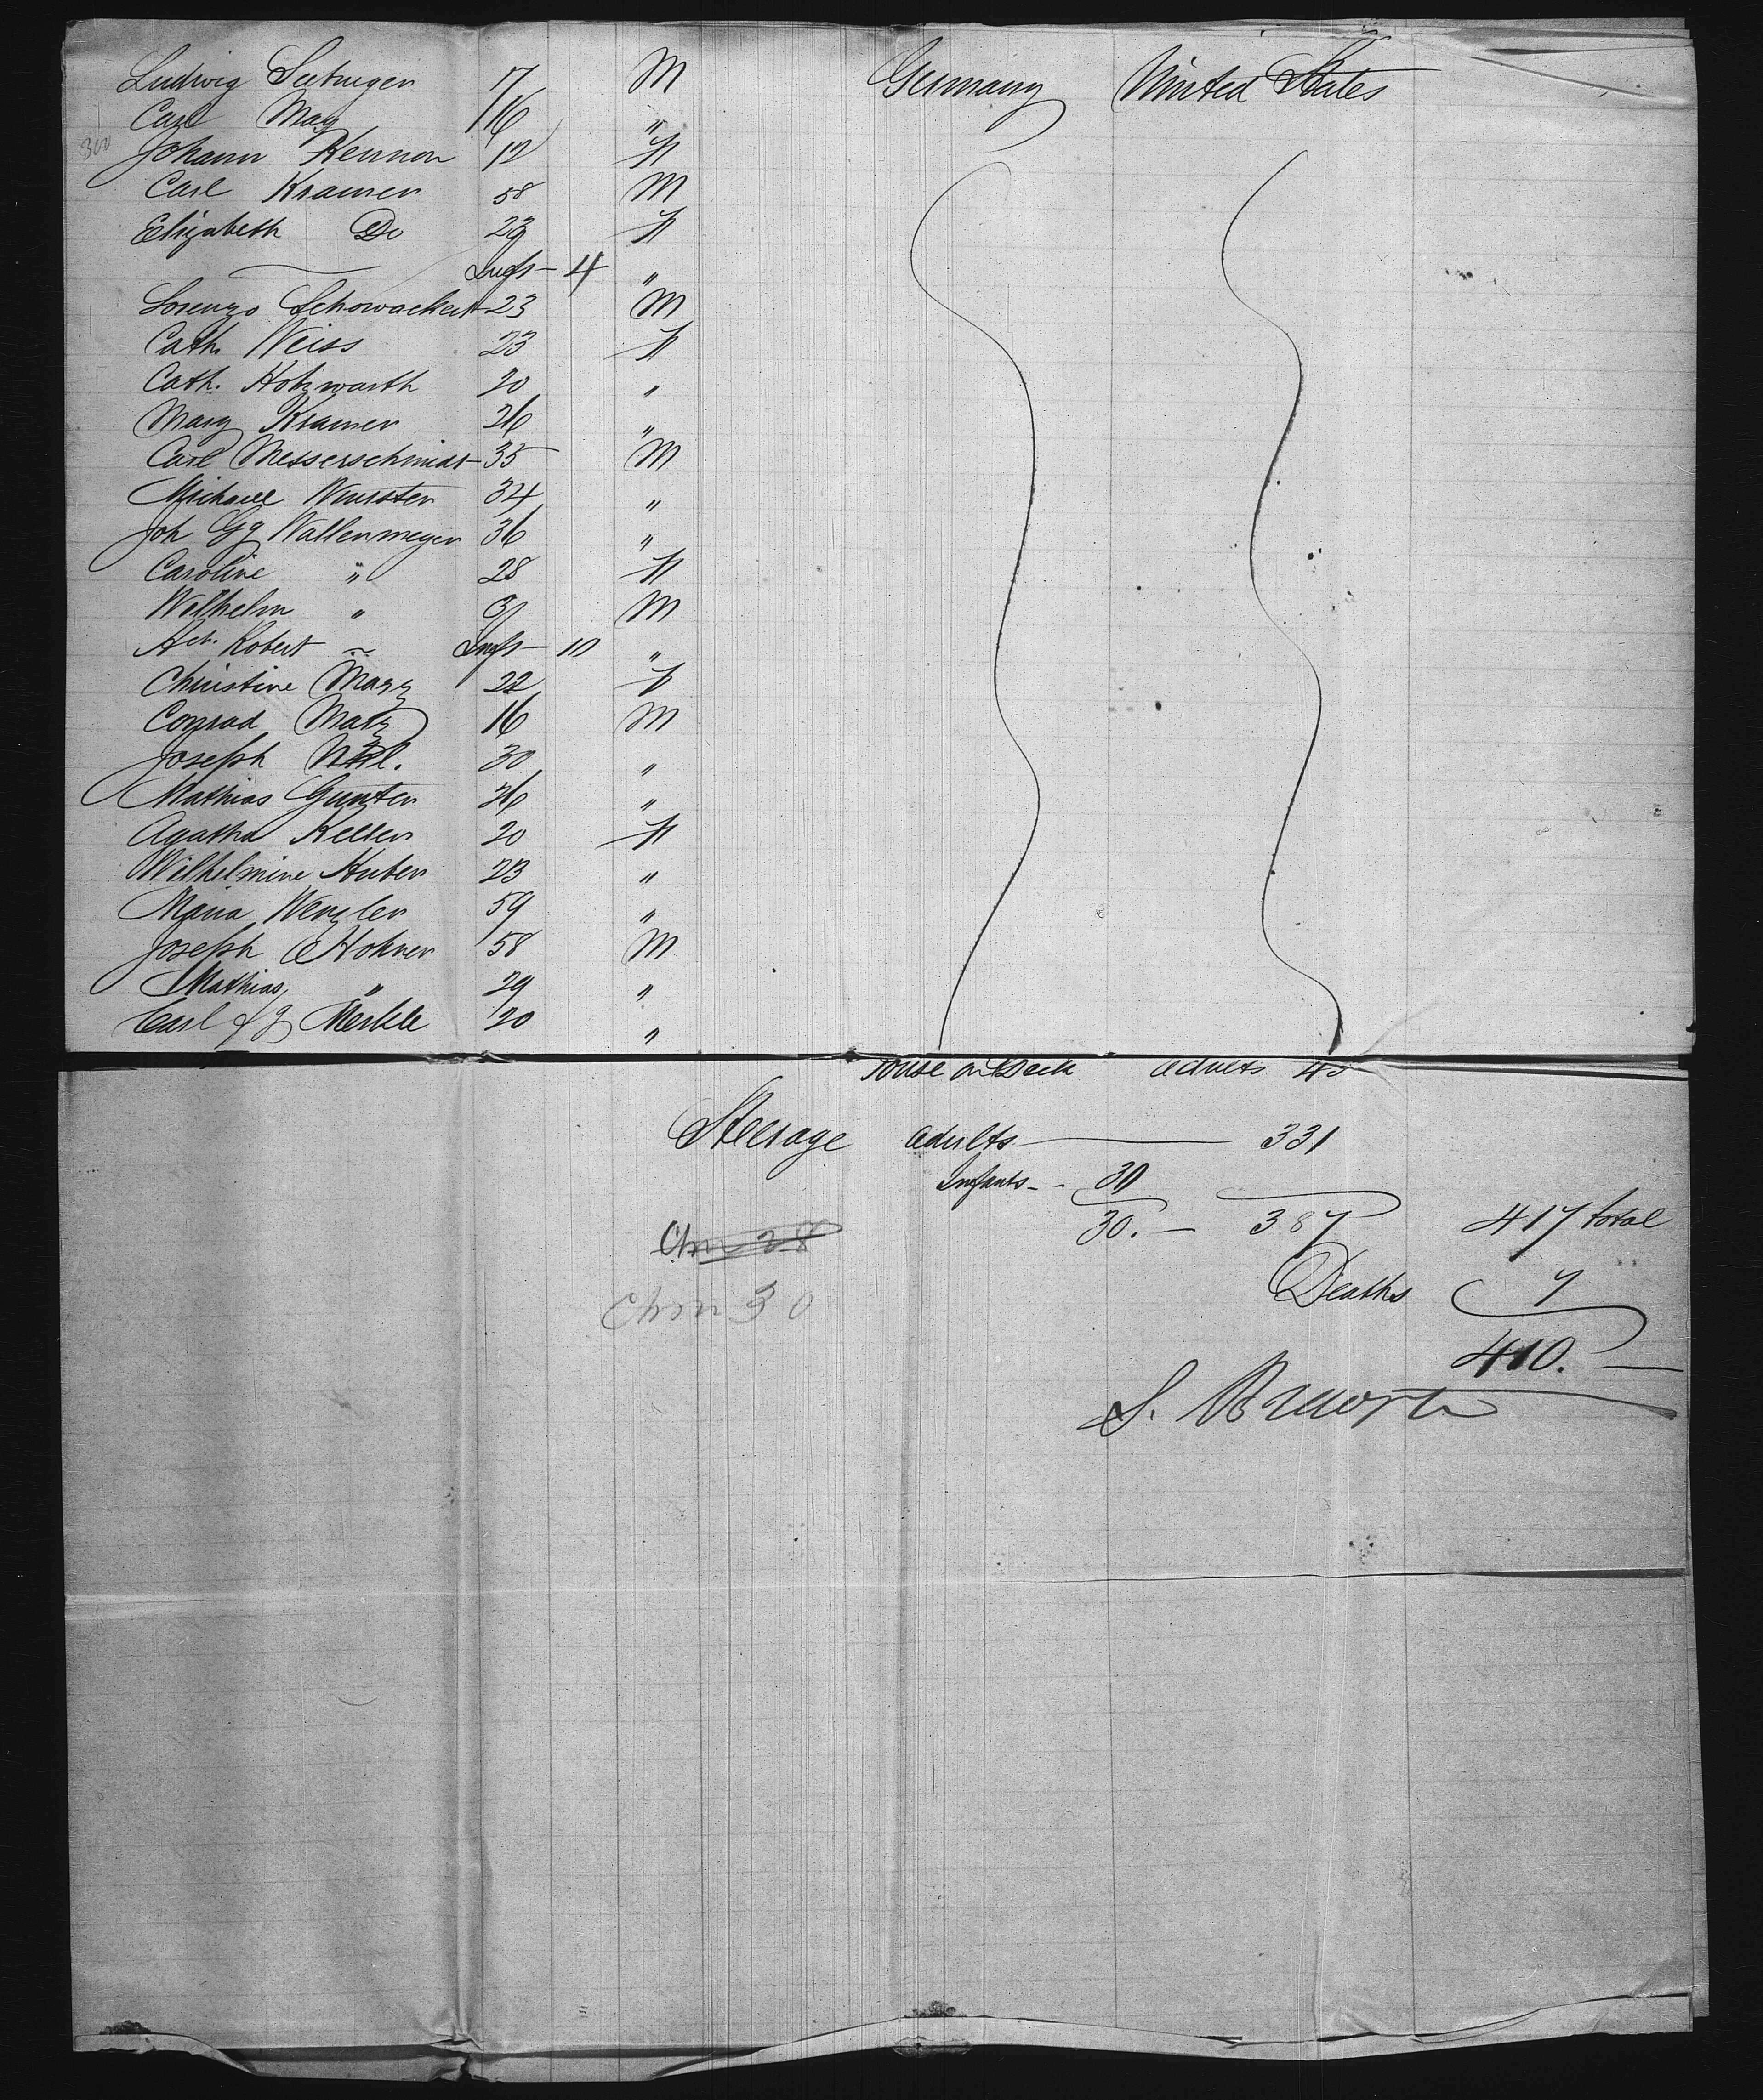 Ludwig 17 M Germany United States
Carl May 16 "
300 Johann 12 F
Carl Kramer 58 M
Elizabeth Do 29 F
Inft - 4 "
Lorenzo 23 M
Cath. Weiss 23 F
Cath. Holzwarth 20 "
Marg Kramer 26 "
Carl Messerschmidt 35 M
Michael Wurster 34 "
Joh Gg Wallenmeyer 36 "
Caroline " 28 F
Wilhelm " 3 M
Robert " Inft - 10 "
Christine 22 F
Conrad 16 M
Joseph 30 "
Mathias Gunter 26 "
Agatha Keller 20 F
Wilhelmine Huber 23 "
Maria Wenzler 59 "
Joseph Hohner 58 M
Mathias " 29 "
Carl Merkle 20 "
House on Deck adults 45
Steerage adults 331
Infants - 30
30. - 387 417 total
Chn 28
Deaths 7
Chn 30
410. -
S.